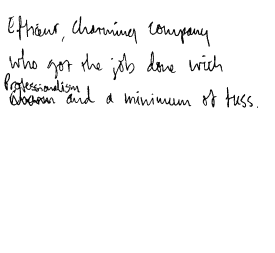 Efficient, charming company
who got the job done with
Professionalism
and a minimum of fuss.